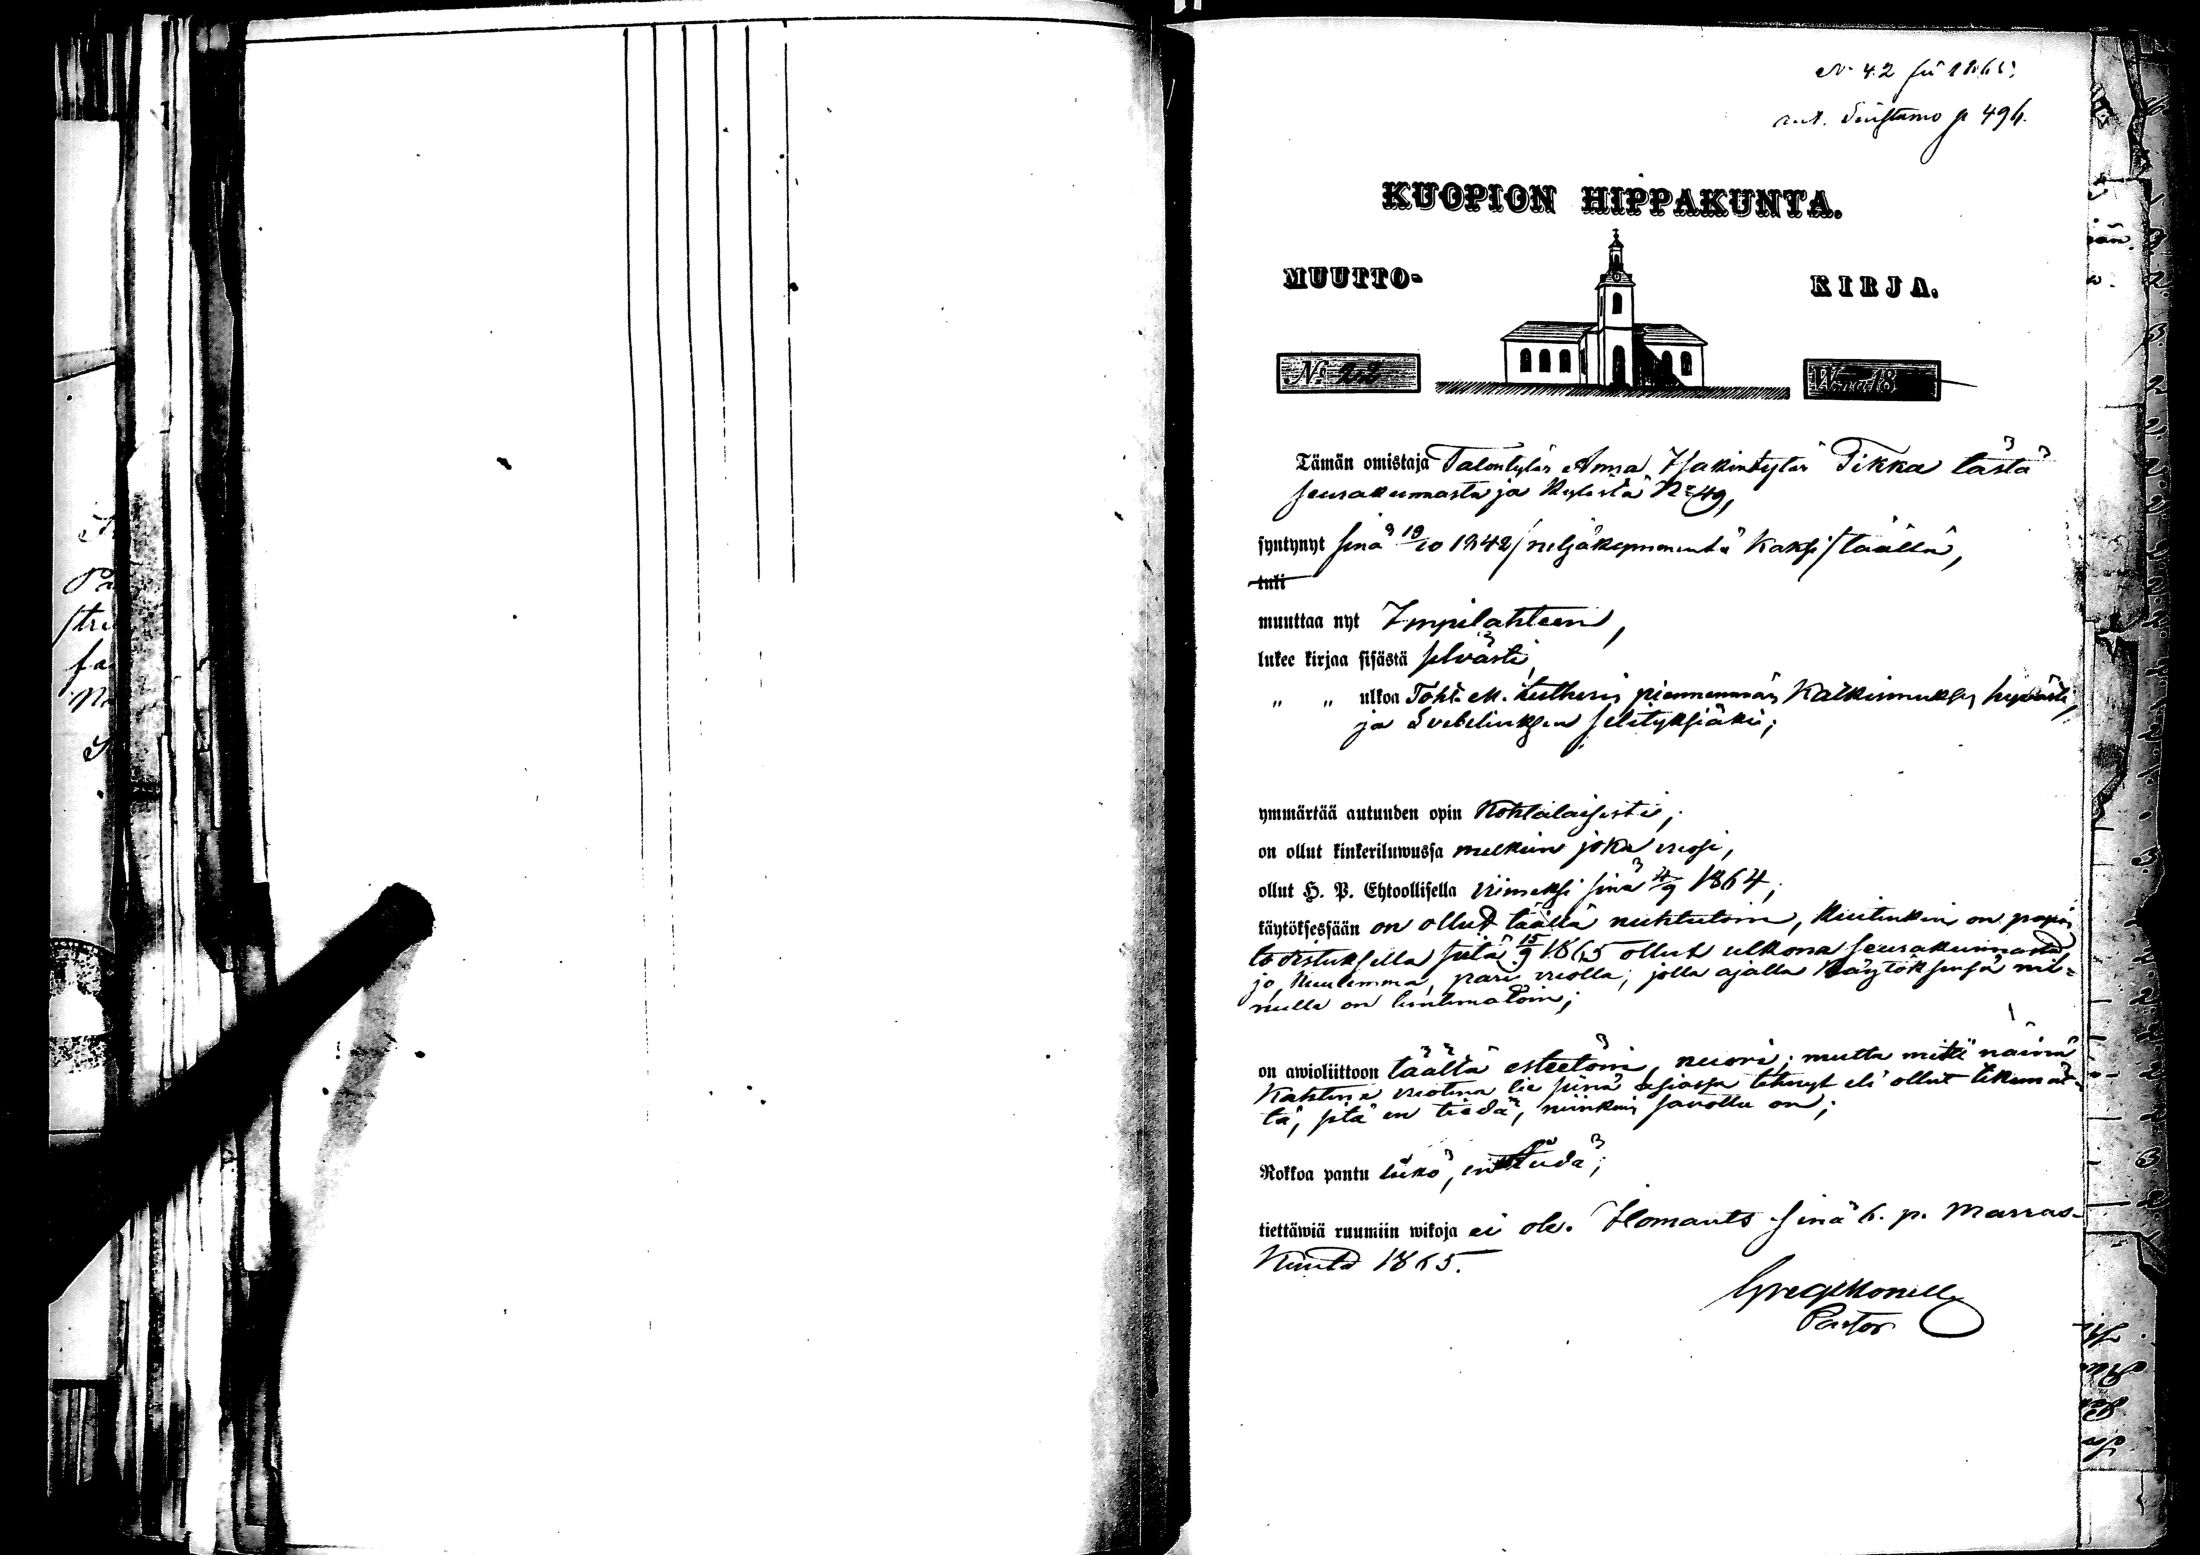 No 42 för 1865;
ant. Suistamo p 496.
KUOPION HIPPAKUNTA.
MUUTTO- KIRJA.
No 22 W. 18
Tämän omistaja Talontytär Anna Isakintytär Tikka tästä
seurakunnasta ja kylästä No 49,
syntynyt sinä 19/10 1842 /neljäkymmentä kaksi/ täällä,
tuli
muuttaa nyt Impilahteen,
lukee kirjaa sisästä selvästi,
" " ulkoa Toht. M. Lutherin piennemmän Katkismuksen hyvästi,
ja Svebeliuksen selityksiäkin;
ymmärtää autuuden opin kohtalaisesti;
on ollut kinkeriluwussa melkein joka vuosi,
ollut H. P. Ehtoollisella viimeksi sinä 4/9 1864;
käytöksessään on ollut täällä nuhtutoin, kuitenkin on papin
todistuksella siitä 15/9 1865 ollut ulkona seurakunnasta
jo, kuulemma, pari vuotta; jolla ajalla käytöksensä mi-
nulle on tuntematoin;
on awioliittoon täältä esteetöin, nuori; mutta mitä näinä
kahtena vuotena lie siinä asiassa tehnyt eli ollut tekemät-
tä, sitä en tiedä, niinkuin sanottu on;
Rokkoa pantu liekö, en tiedä;
tiettäwiä ruumiin wikoja ei ole. Ilomants sinä 6. p. Marras-
Kuuta 1865.
Pastor